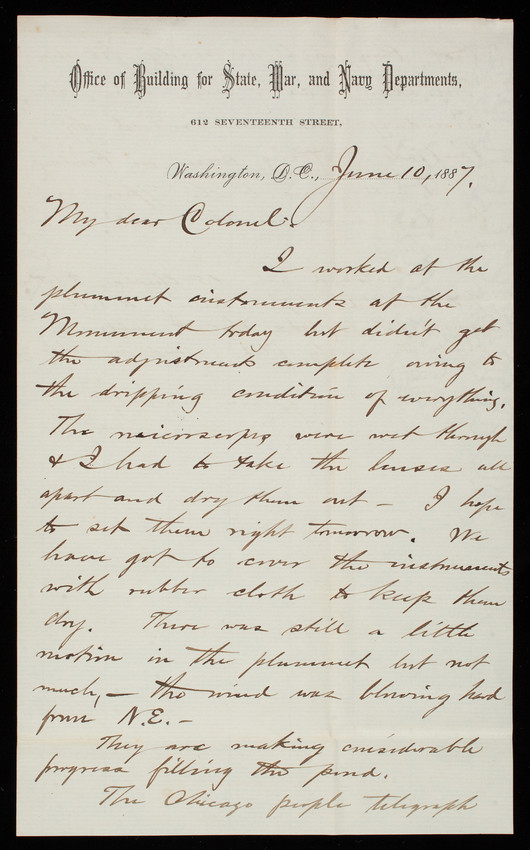 Office of Building for State, War, and Navy Departments,
612 SEVENTEENTH STREET,
Washington, D.C., June 10, 1887.
My dear Colonel:
I worked at the
plummet instruments at the
Monument today but didn't get
the adjustments complete owing to
the dripping condition of everything.
The microscopes were wet through
& I had to take the lenses all
apart and dry them out – I hope
to set them right tomorrow. We
have got to cover the instruments
with rubber cloth to keep them
dry. There was still a little
motion in the plummet but not
much, – the wind was blowing hard
from N.E. –
They are making considerable
progress filling the pond.
The Chicago people telegraph